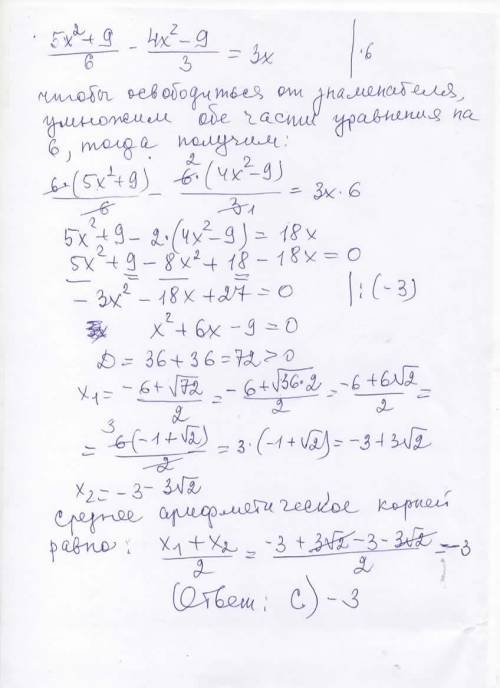 (5x²+9)/6 - (4x²-9)/3 = 3x |·6
чтобы освободиться от знаменателя,
умножим обе части уравнения на
6, тогда получим:
6·(5x²+9)/6 - 6²·(4x²-9)/3₁ = 3x·6
5x²+9-2·(4x²-9)=18x
5x²+9-8x²+18-18x=0
-3x²-18x+27=0 |:(-3)
x²+6x-9=0
D=36+36=72>0
x₁=(-6+√72)/2=(-6+√36·2)/2=(-6+6√2)/2=
=6³(-1+√2)/2=3·(-1+√2)=-3+3√2
x₂=-3-3√2
Среднее арифметическое корней
равно: (x₁+x₂)/2=(-3+3√2-3-3√2)/2=-3
(Ответ: С) -3